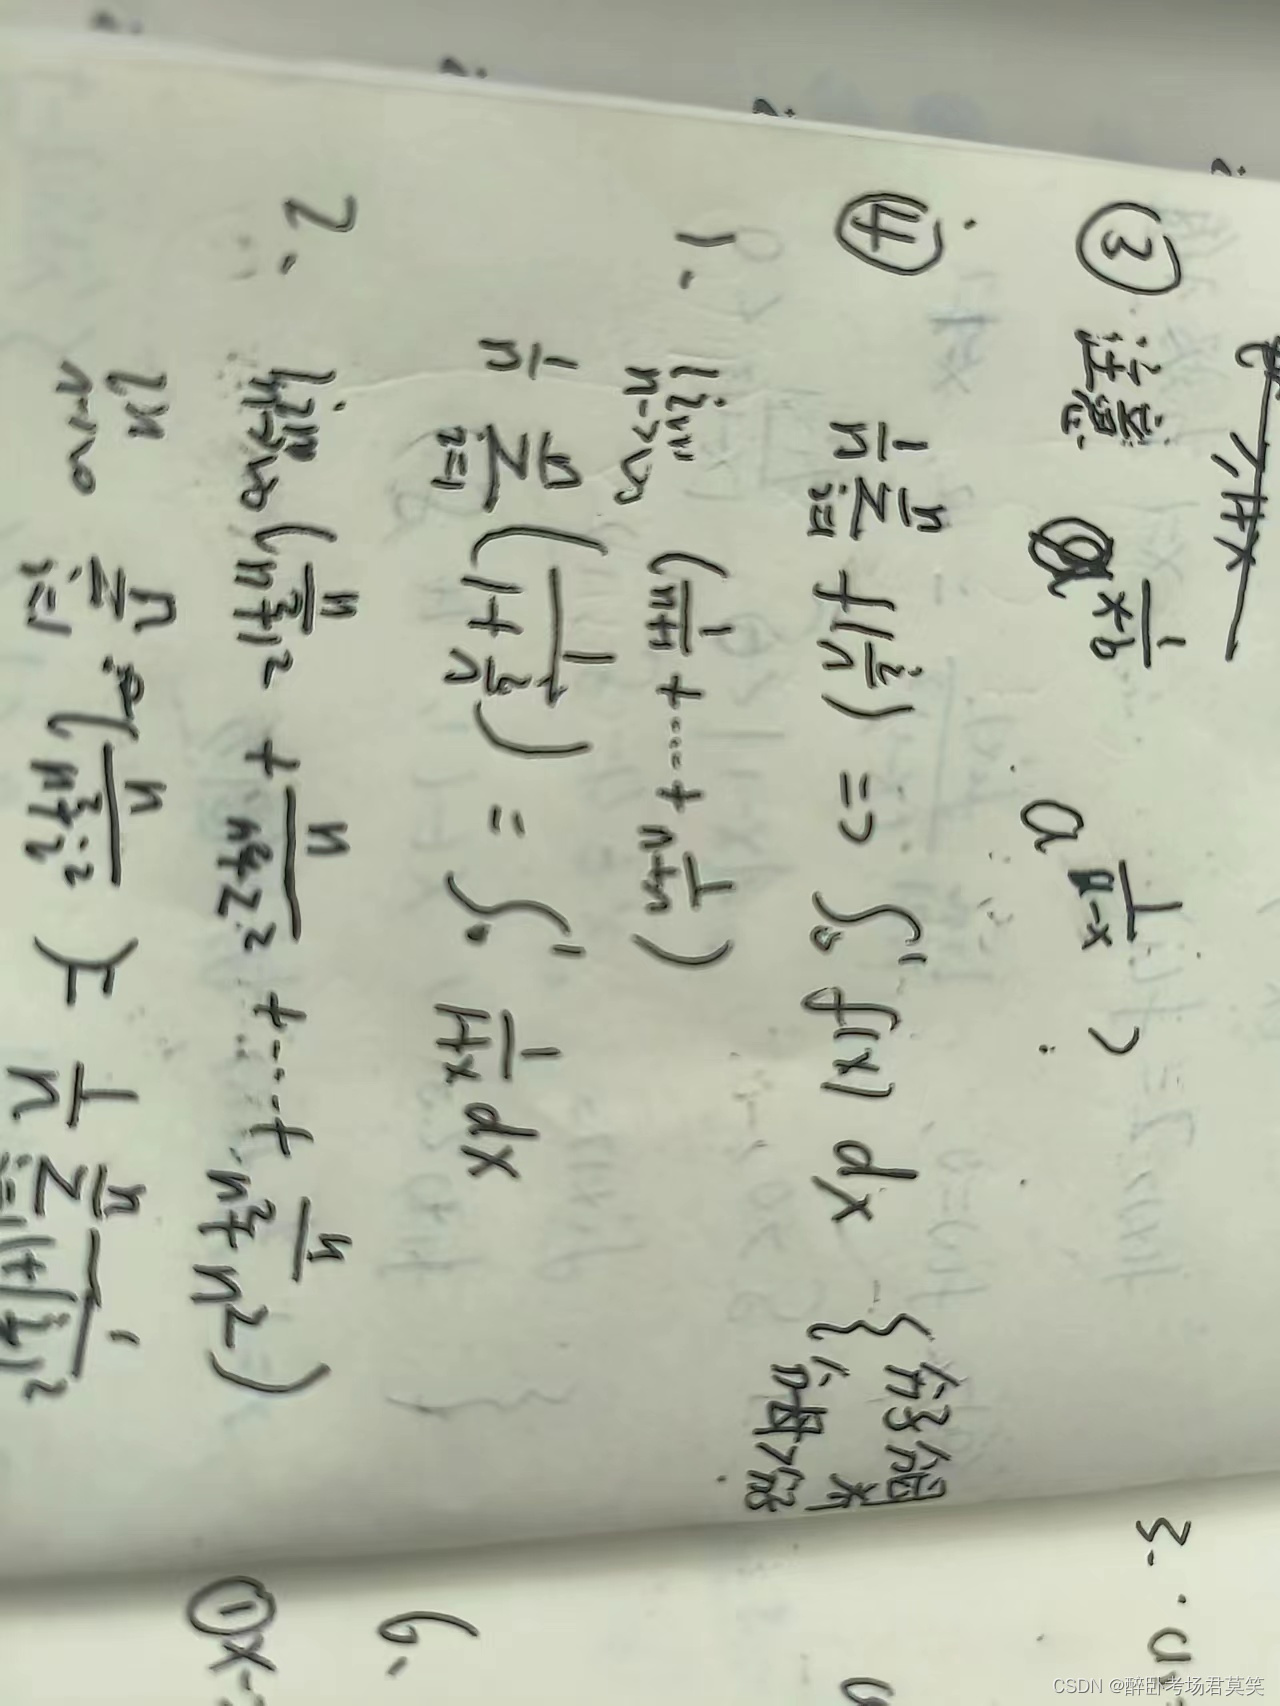 ③ 注意 a^{\frac{1}{x-b}} a^{\frac{1}{a-x}}
④ \frac{1}{n} \sum_{i=1}^{n} f(\frac{i}{n}) => \int_0^1 f(x) dx {
1. \lim_{n->\infty} (\frac{1}{n+1} + …… + \frac{1}{n+n})
\frac{1}{n} \sum_{i=1}^{n} (\frac{1}{1+\frac{i}{n}}) = \int_0^1 \frac{1}{1+x} dx
2. \lim_{n->\infty} (\frac{n}{n^2+1^2} + \frac{n}{n^2+2^2} + …… + \frac{n}{n^2+n^2})
\lim_{n->\infty} \sum_{i=1}^{n} (\frac{n}{n^2+i^2}) = \frac{1}{n} \sum_{i=1}^{n} \frac{1}{1+(\frac{i}{n})^2}
3.
6.
① x-
CSDN @醉卧考场君莫笑